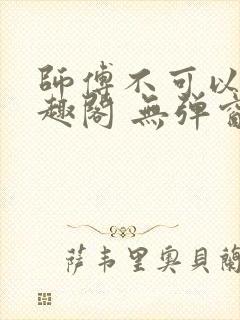 師傅不可以
趣閣 無彈窗
萨韦里奥貝蘭